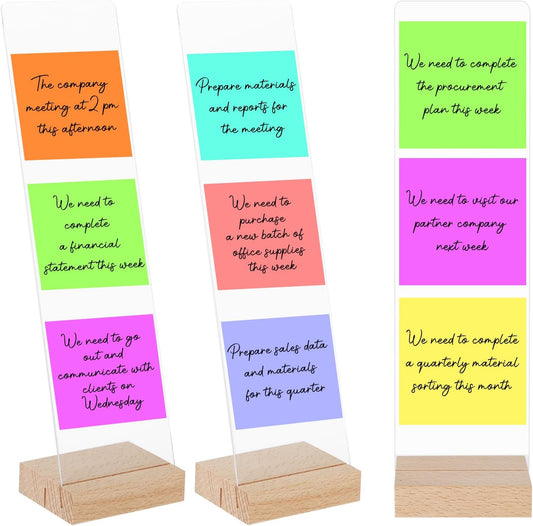 The company
meeting at 2 pm
this afternoon
We need to
complete
a financial
statement this week
We need to go
out and
communicate with
clients on
Wednesday
Prepare materials
and reports for
the meeting
We need to
purchase
a new batch of
office supplies
this week
Prepare sales data
and materials
for this quarter
We need to complete
the procurement
plan this week
We need to visit our
partner company
next week
We need to complete
a quarterly material
sorting this month